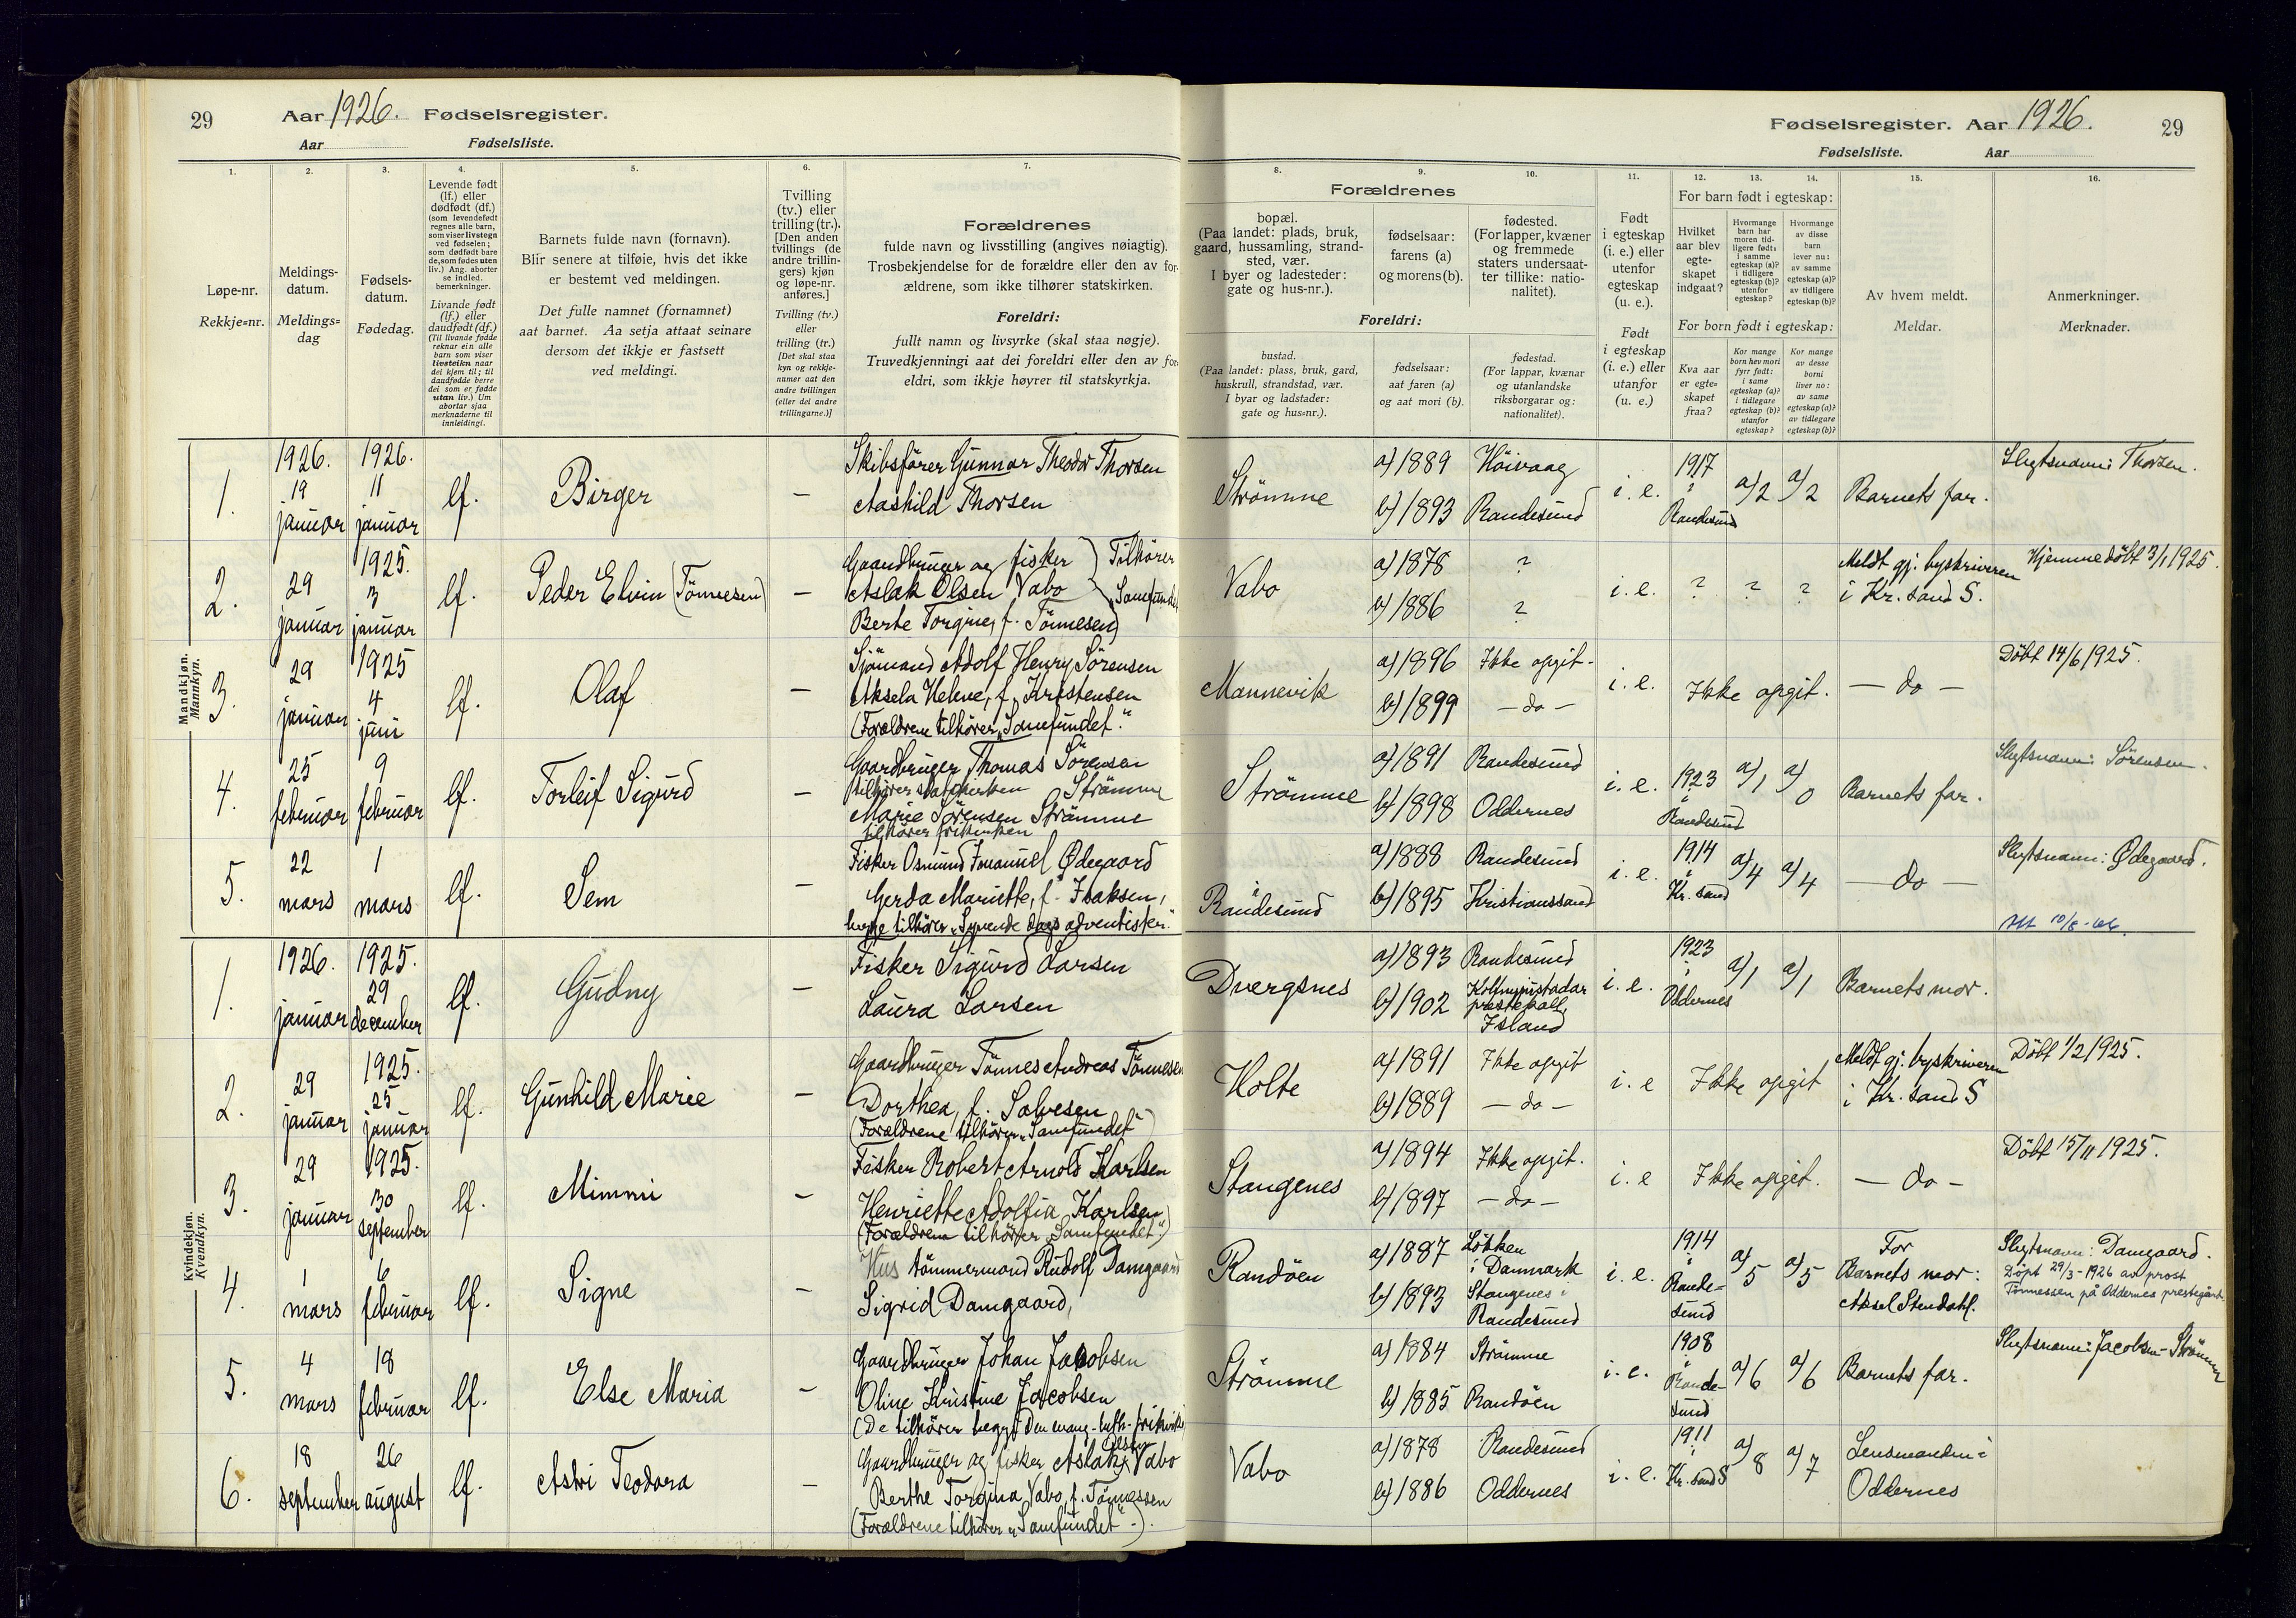 29 Aar 1926. Fødselsregister.
Aar Fødselsliste.
1. 2. 3. 4. 5. 6. 7.
Løpe-nr.
Rekkje-nr.
Meldings-
datum.
Meldings-
dag
Fødsels-
datum.
Fødedag.
Levende født
(lf.) eller
dødfødt (df.)
(som levendefødt
regnes alle barn,
som viser livstegn
ved fødselen;
som dødfødt bare
de, som fødes uten
liv.) Ang. aborter
se indled.
bemerkninger.
Livande født
(lf.) eller
daudfødt (df.)
(Til livande fødde
reknar ein alle
barn som viser
livsteikn naar
dei kjem til; til
daudfødde berre
dei som er fødde
utan liv.) Um
abortar sjaa
merknaderne til
innleidingi.
Barnets fulde navn (fornavn).
Blir senere at tilføie, hvis det ikke
er bestemt ved meldingen.
Det fulle namnet (fornamnet)
aat barnet. Aa setja attaat seinare
dersom det ikkje er fastsett
ved meldingi.
Tvilling
(tv.) eller
trilling (tr.).
[Den anden
tvillings (de
andre trillin-
gers) kjøn
og løpe-nr.
anføres.]
Tvilling (tv.)
eller
trilling (tr.)
[Det skal staa
kyn og rekkje-
numer aat den
andre tvillingen
(eller dei andre
trillingarne.)]
Forældrenes
fulde navn og livsstilling (angives nøiagtig).
Trosbekjendelse for de forældre eller den av for-
ældrene, som ikke tilhører statskirken.
Foreldri:
fullt namn og livsyrke (skal staa nøgje).
Truvedkjenningi aat dei foreldri eller den av for-
eldri, som ikkje høyrer til statskyrkja.
Mandkjøn.
Mannkyn.
1. 1926. 19 januar 1926. 11 januar lf. Birger –
Skibsfører Gunnar Theodor Thorsen
Aashild Thorsen
2. 29 januar 1925. 3 januar lf. Peder Elvin (Tönnesen) –
Gaardbruger og fisker
Aslak Olsen Vabo
Berte Torgine, f. Tönnesen
Tilhörer
"Samfundet
3. 29 januar 1925 4 juni lf. Olaf –
Sjömand Adolf Henry Sörensen
Aksela Helene, f. Kristensen
(Forældrene tilhörer "Samfundet."
4. 25 februar 9 februar lf. Torleif Sigurd –
Gaardbruger Thomas Sörensen
tilhörer statskirken Strömme
Marie Sörensen Strömme
tilhörer frikirken
5. 22 mars 1 mars lf. Sem –
Fisker Osmund Imanuel Ødegaard
Gerda Mariette, f. Isaksen,
begge tilhörer "Syvende dags adventister."
Kvindekjøn.
Kvendkyn.
1. 1926. januar 1925. 29 december lf. Gudny –
Fisker Sigurd Larsen
Laura Larsen
2. 29 januar 1925. 25 januar lf. Gunhild Marie –
Gaardbruger Tönnes Andreas Tönnesen
Dorthea, f. Salvesen
(Forældrene tilhörer "Samfundet")
3. 29 januar 1925. 30 september lf. Mimmi –
Fisker Robert Arnold Karlsen
Henriette Adolfia Karlsen
(Forældrene tilhörer "Samfundet".)
4. 1 mars 6 februar lf. Signe –
Hus tömmermand Rudolf Damgaard
Sigrid Damgaard,
5. 4 mars 18 februar lf. Else Maria –
Gaardbruger Johan Jacobsen
Oline Kristine Jacobsen
(De tilhörer begge Den evang.-luth. frikirke
6. 18 september 26 august lf. Astri Teodora –
Gaardbruger og fisker Aslak Olsen Vabo
Berthe Torgina Vabo, f. Tönnessen
(Forældrene tilhörer "Samfundet".).
Fødselsregister. Aar 1926. 29
Fødselsliste. Aar
8. 9. 10. 11. 12. 13. 14. 15. 16.
Forældrenes
bopæl.
(Paa landet: plads, bruk,
gaard, hussamling, strand-
sted, vær.
I byer og ladesteder:
gate og hus-nr.).
fødselsaar:
farens (a)
og morens (b).
fødested.
(For lapper, kvæner
og fremmede
staters undersaat-
ter tillike: natio-
nalitet).
Foreldri:
bustad.
(Paa landet: plass, bruk, gard,
huskrull, strandstad, vær.
I byar og ladstader:
gate og hus-nr.).
fødselsaar:
aat faren (a)
og aat mori (b).
fødestad.
(For lappar, kvænar
og utanlandske
riksborgarar og:
nationalitet).
Født
i egteskap
(i. e.) eller
utenfor
egteskap
(u. e.).
Født
i egteskap
(i. e.) eller
utanfor
(u. e.)
For barn født i egteskap:
Hvilket
aar blev
egte-
skapet
indgaat?
Hvormange
barn har
moren tid-
ligere født:
i samme
egteskap (a)?
i tidligere
egteskap (b)?
utenfor
egteskap?
Hvormange
av disse
barn
lever nu:
av samme
egteskap (a)?
av tidligere
egteskap (b)?
For born født i egteskap:
Kva aar
er egte-
skapet
fraa?
Kor mange
born hev mori
fyrr født:
i same
egteskap (a)?
i tidlegare
egteskap (b)?
utanfor
egteskap?
Kor mange
av desse
borni
liver no:
av same
egteskap (a)?
av tidlegare
egteskap (b)?
Av hvem meldt.
Meldar.
Anmerkninger.
Merknader.
Strömme a) 1889 Höivaag b) 1893 Randesund i. e. 1917 i Randesund a/2 a/2 Barnets far. Slegtsnavn: Thorsen.
Vabo a) 1878 ? b) 1886 ? i. e. ? ? ? Meldt gj. byskriveren i Kr. sand S. Hjemmedöbt 3/1 1925.
Mannevik a) 1896 Ikke opgit. b) 1899 – do – i. e. Ikke opgit. – do – Döbt 14/6 1925.
Strömme a) 1891 Randesund b) 1898 Oddernes i. e. 1923 i Randesund a/1 a/0 Barnets far. Slegtsnavn: Sörensen.
i Randesund a) 1888 Randesund b) 1895 Kristianssand i. e. 1914 i Kr. sand a/4 a/4 – do – Slegtsnavn: Ødegaard.
Dvergsnes a) 1893 Randesund b) 1902 prestekall, Island i. e. 1923 i Oddernes a/1 a/1 Barnets mor.
Holte a) 1891 Ikke opgit b) 1889 – do – i. e Ikke opgit Meldt gj. byskriveren i Kr. sand S Döbt 1/2 1925.
Stangenes a) 1894 Ikke opgit. b) 1897 – do – i. e Ikke opgit. – do – Döbt 15/11 1925.
Randöen a) 1887 Lökken i Danmark b) 1893 Stangenes i Randesund i. e. 1914 i Rande-sund a/5 a/5 For Barnets mor: Aksel Stendahl. Slegtsnavn: Damgaard.
Döpt 29/3-1926 av prost
Tönnessen på Oddernes prestegård
Strömme a) 1884 Strömme b) 1885 Randöen i. e. 1908 i Rande-sund a/6 a/6 Barnets far. Slegtsnavn: Jacobsen-Strömme
Vabo a) 1878 Randesund b) 1886 Oddernes i. e. 1911 i Kr. sand S a/8 a/7 Lensmanden i Oddernes